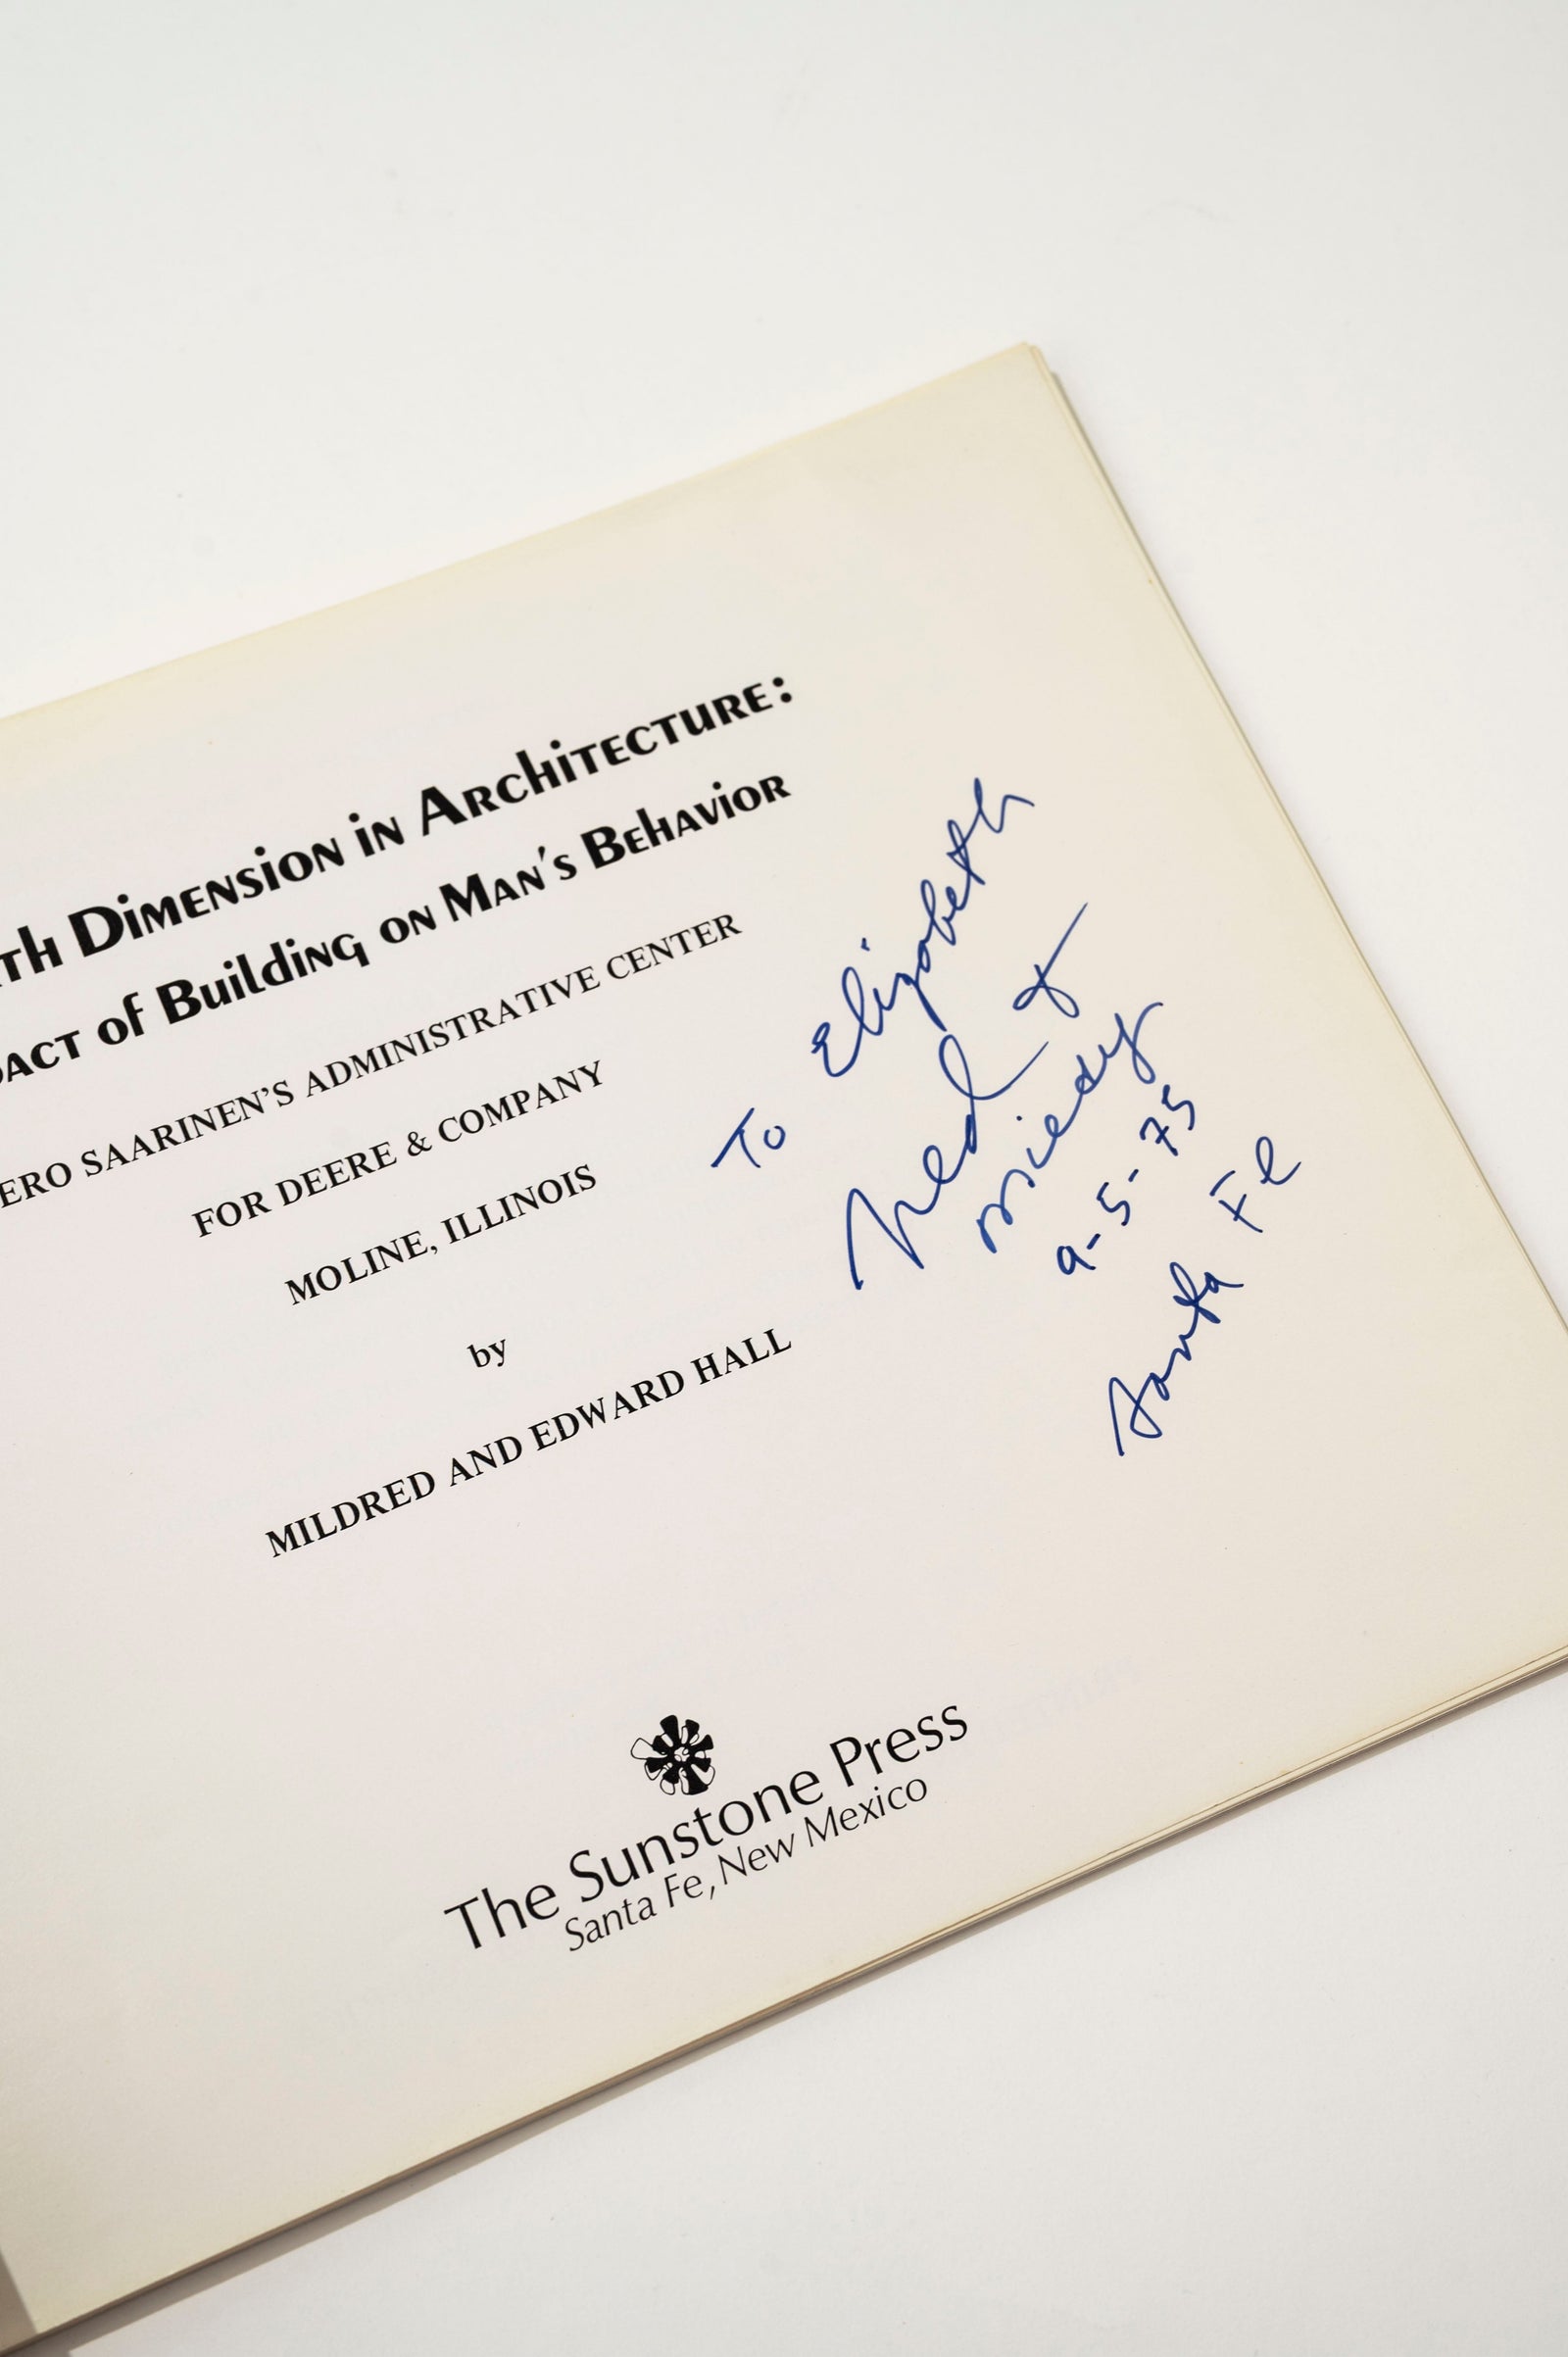 th Dimension in Architecture:
pact of Building on Man's Behavior
ERO SAARINEN'S ADMINISTRATIVE CENTER
FOR DEERE & COMPANY
MOLINE, ILLINOIS
by
MILDRED AND EDWARD HALL
The Sunstone Press
Santa Fe, New Mexico
To Elizabeth
Ned &
9-5-75
Santa Fe